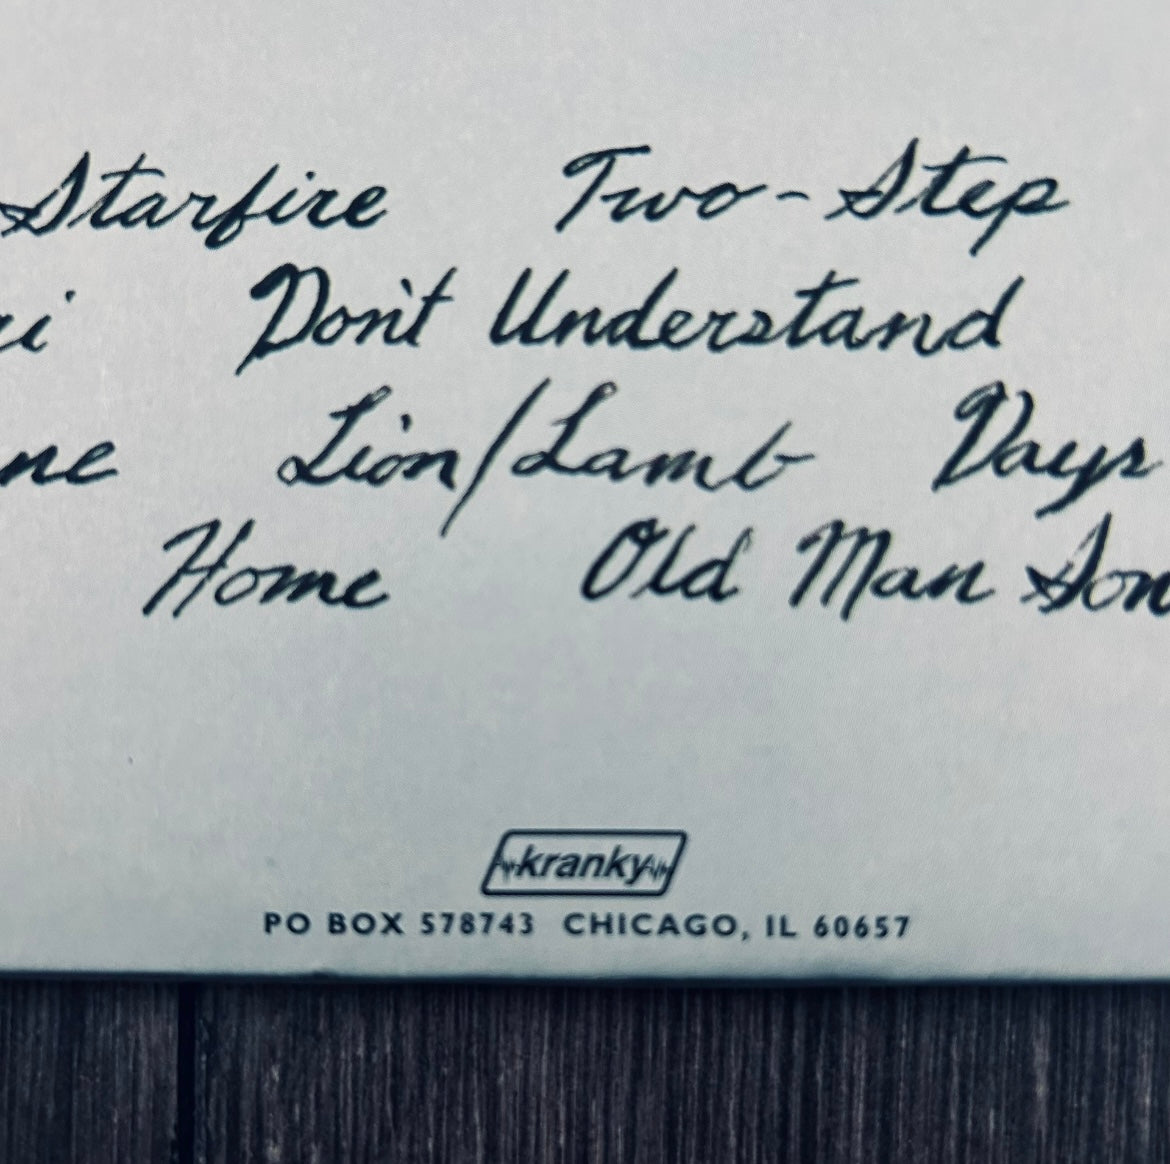 Starfire Two-Step
ri Don't Understand
ne Lion/Lamb Days
Home Old Man Son
kranky
PO BOX 578743 CHICAGO, IL 60657